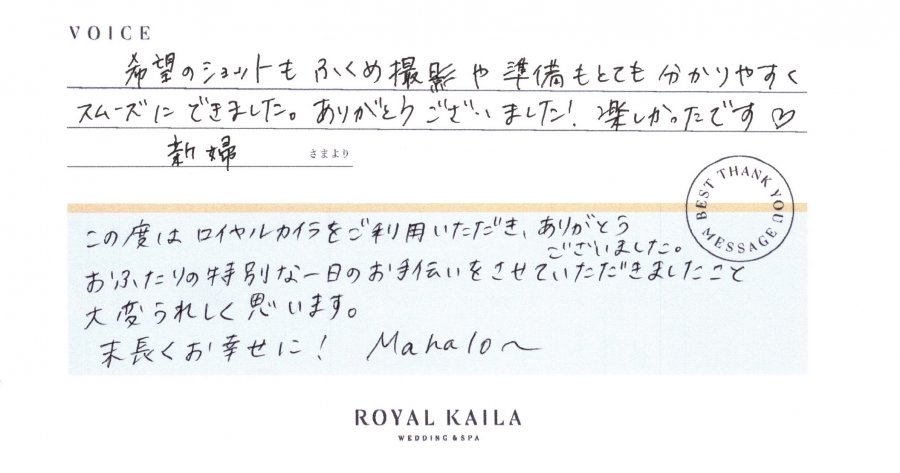 VOICE
希望のショットもふくめ撮影や準備もとても分かりやすく
スムーズにできました。ありがとうございました！楽しかったです♡
新婦 さまより
BEST THANK YOU MESSAGE
この度はロイヤルカイラをご利用いただき、ありがとう
ございました。
おふたりの特別な一日のお手伝いをさせていただきましたこと
大変うれしく思います。
末長くお幸せに！ Mahalo～
ROYAL KAILA
WEDDING & SPA